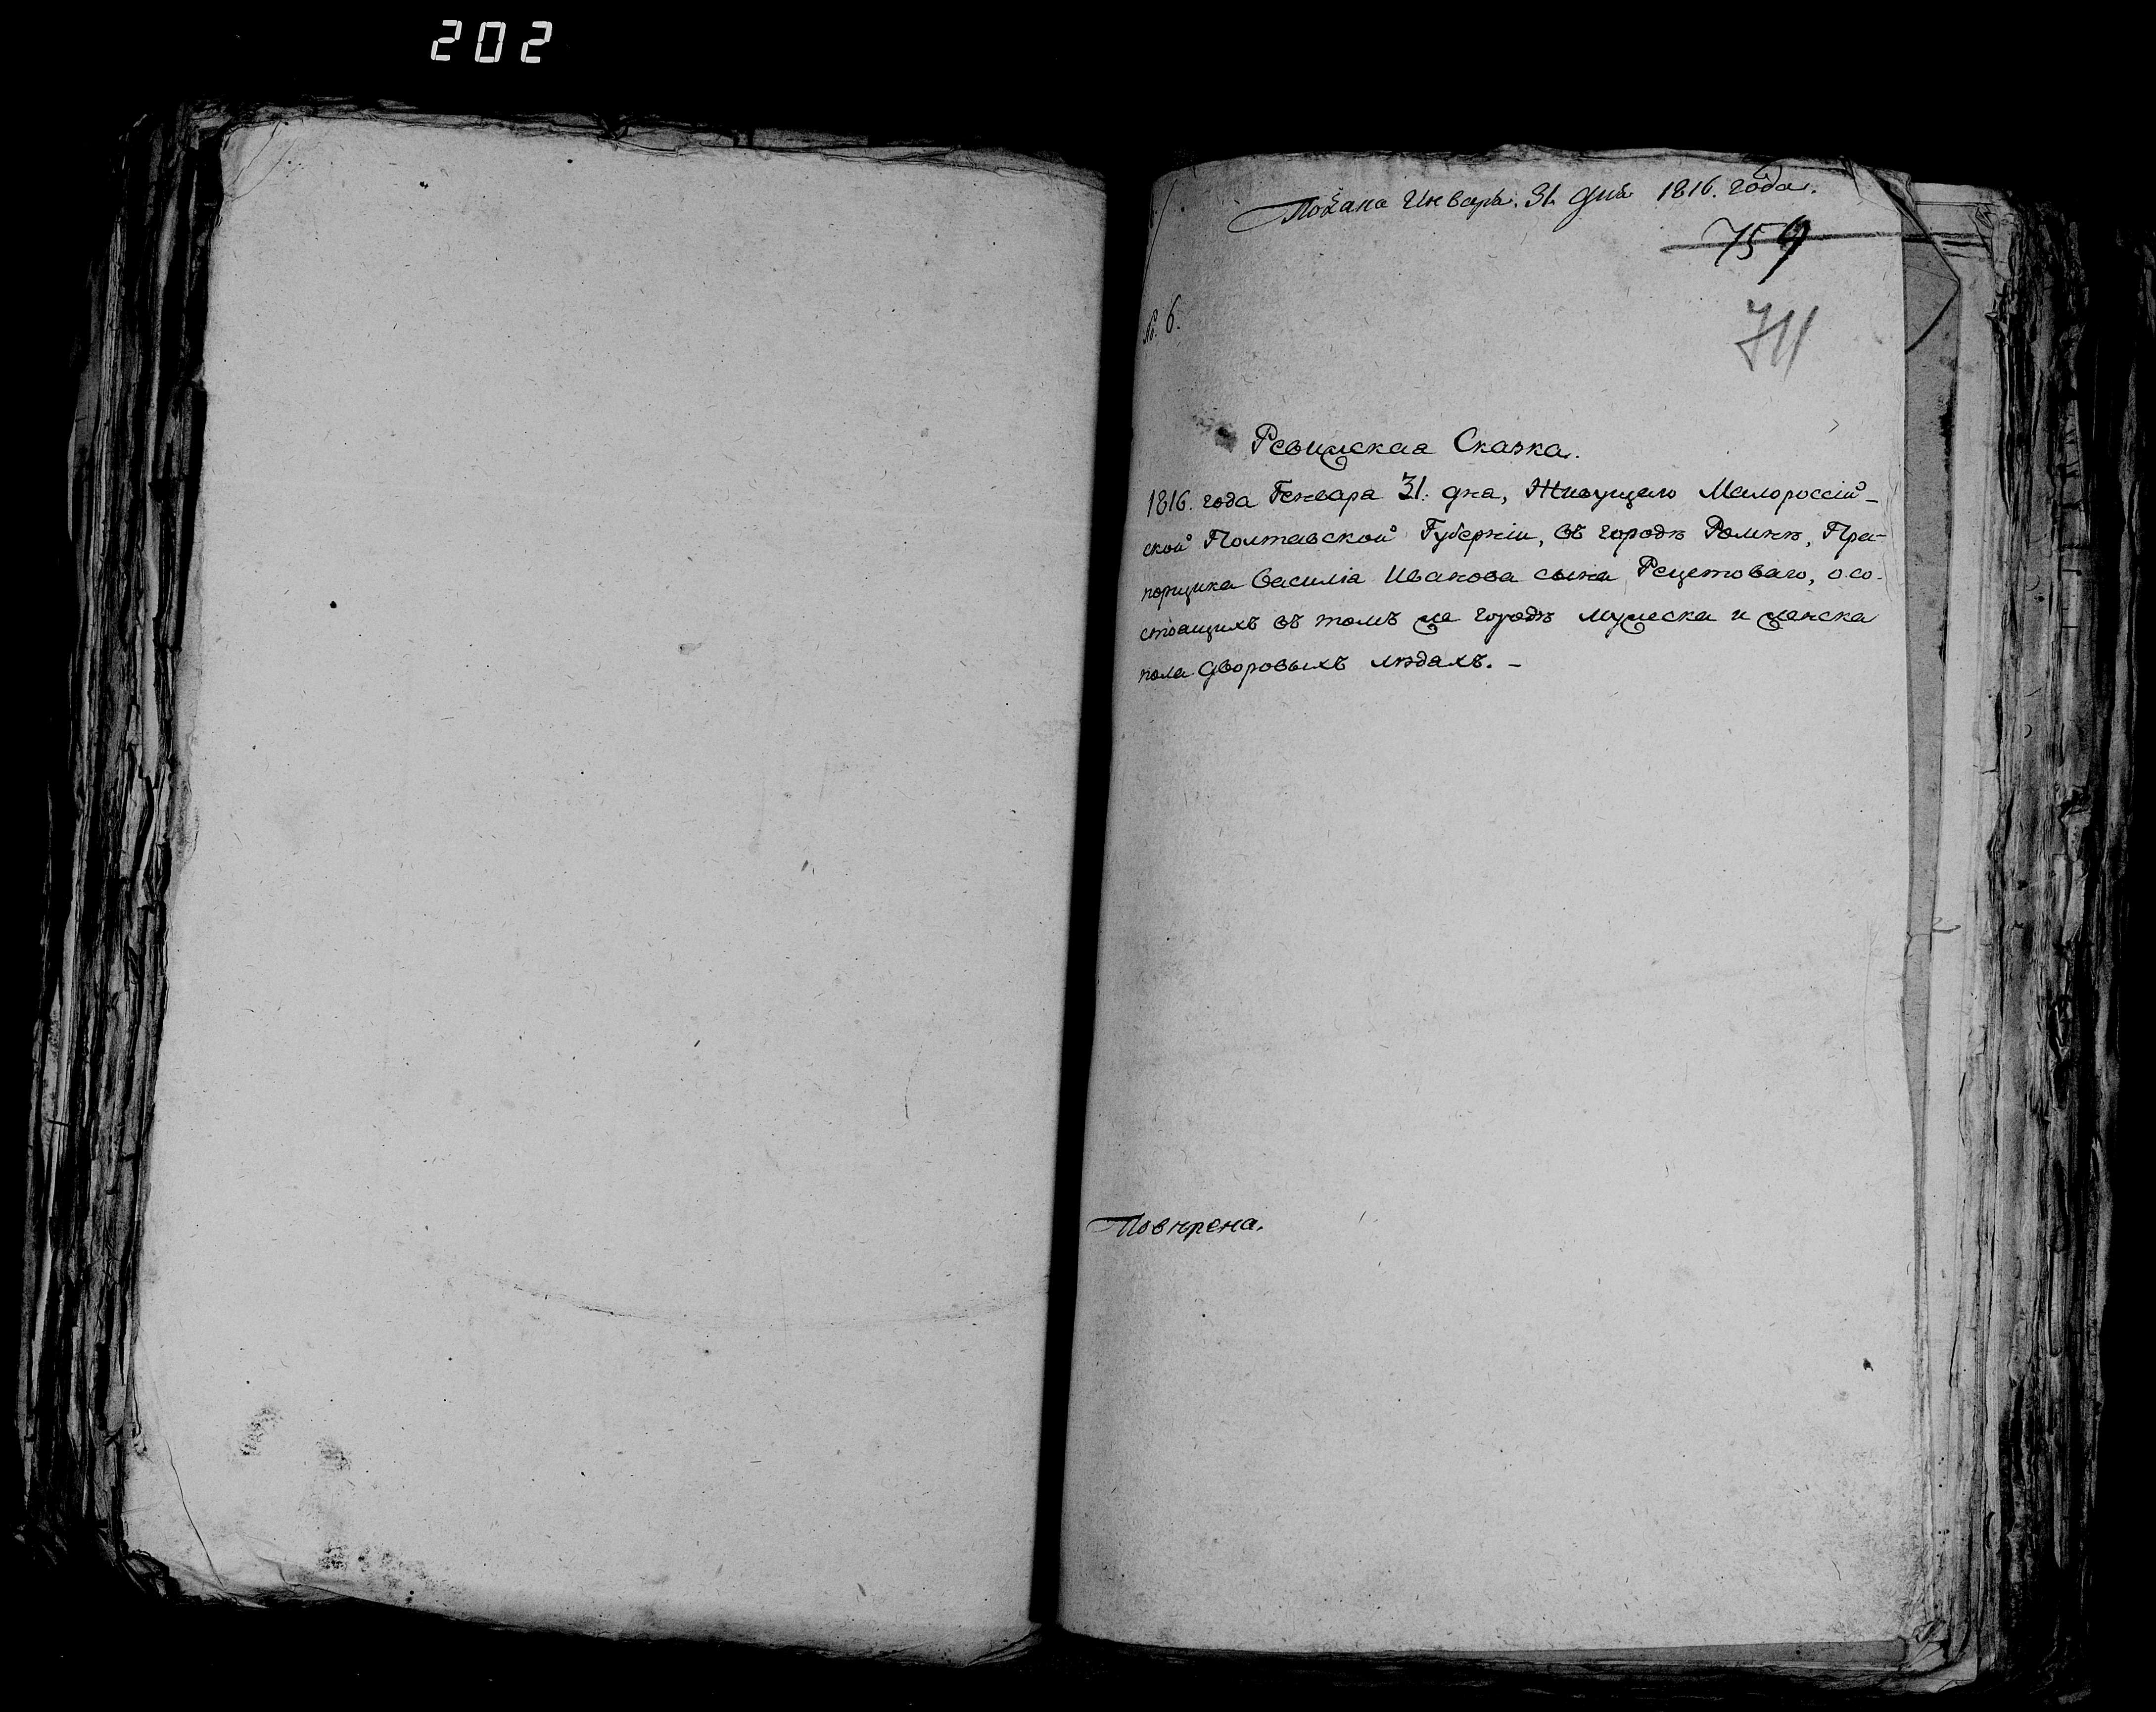 202
Подана Январь. 31. дня 1816. года.
759
711
№. 6.
Ревижская Сказка.
1816. года Генваря 31. дня, Живущаго Малороссій-
ской Полтавской Губерніи, въ городѣ Ромнѣ, Пра-
порщика Василія Иванова сына Рецетоваго, о со-
стоящихъ въ томъ же городѣ мужеска и женска
пола дворовыхъ людяхъ. -
Повѣрена.